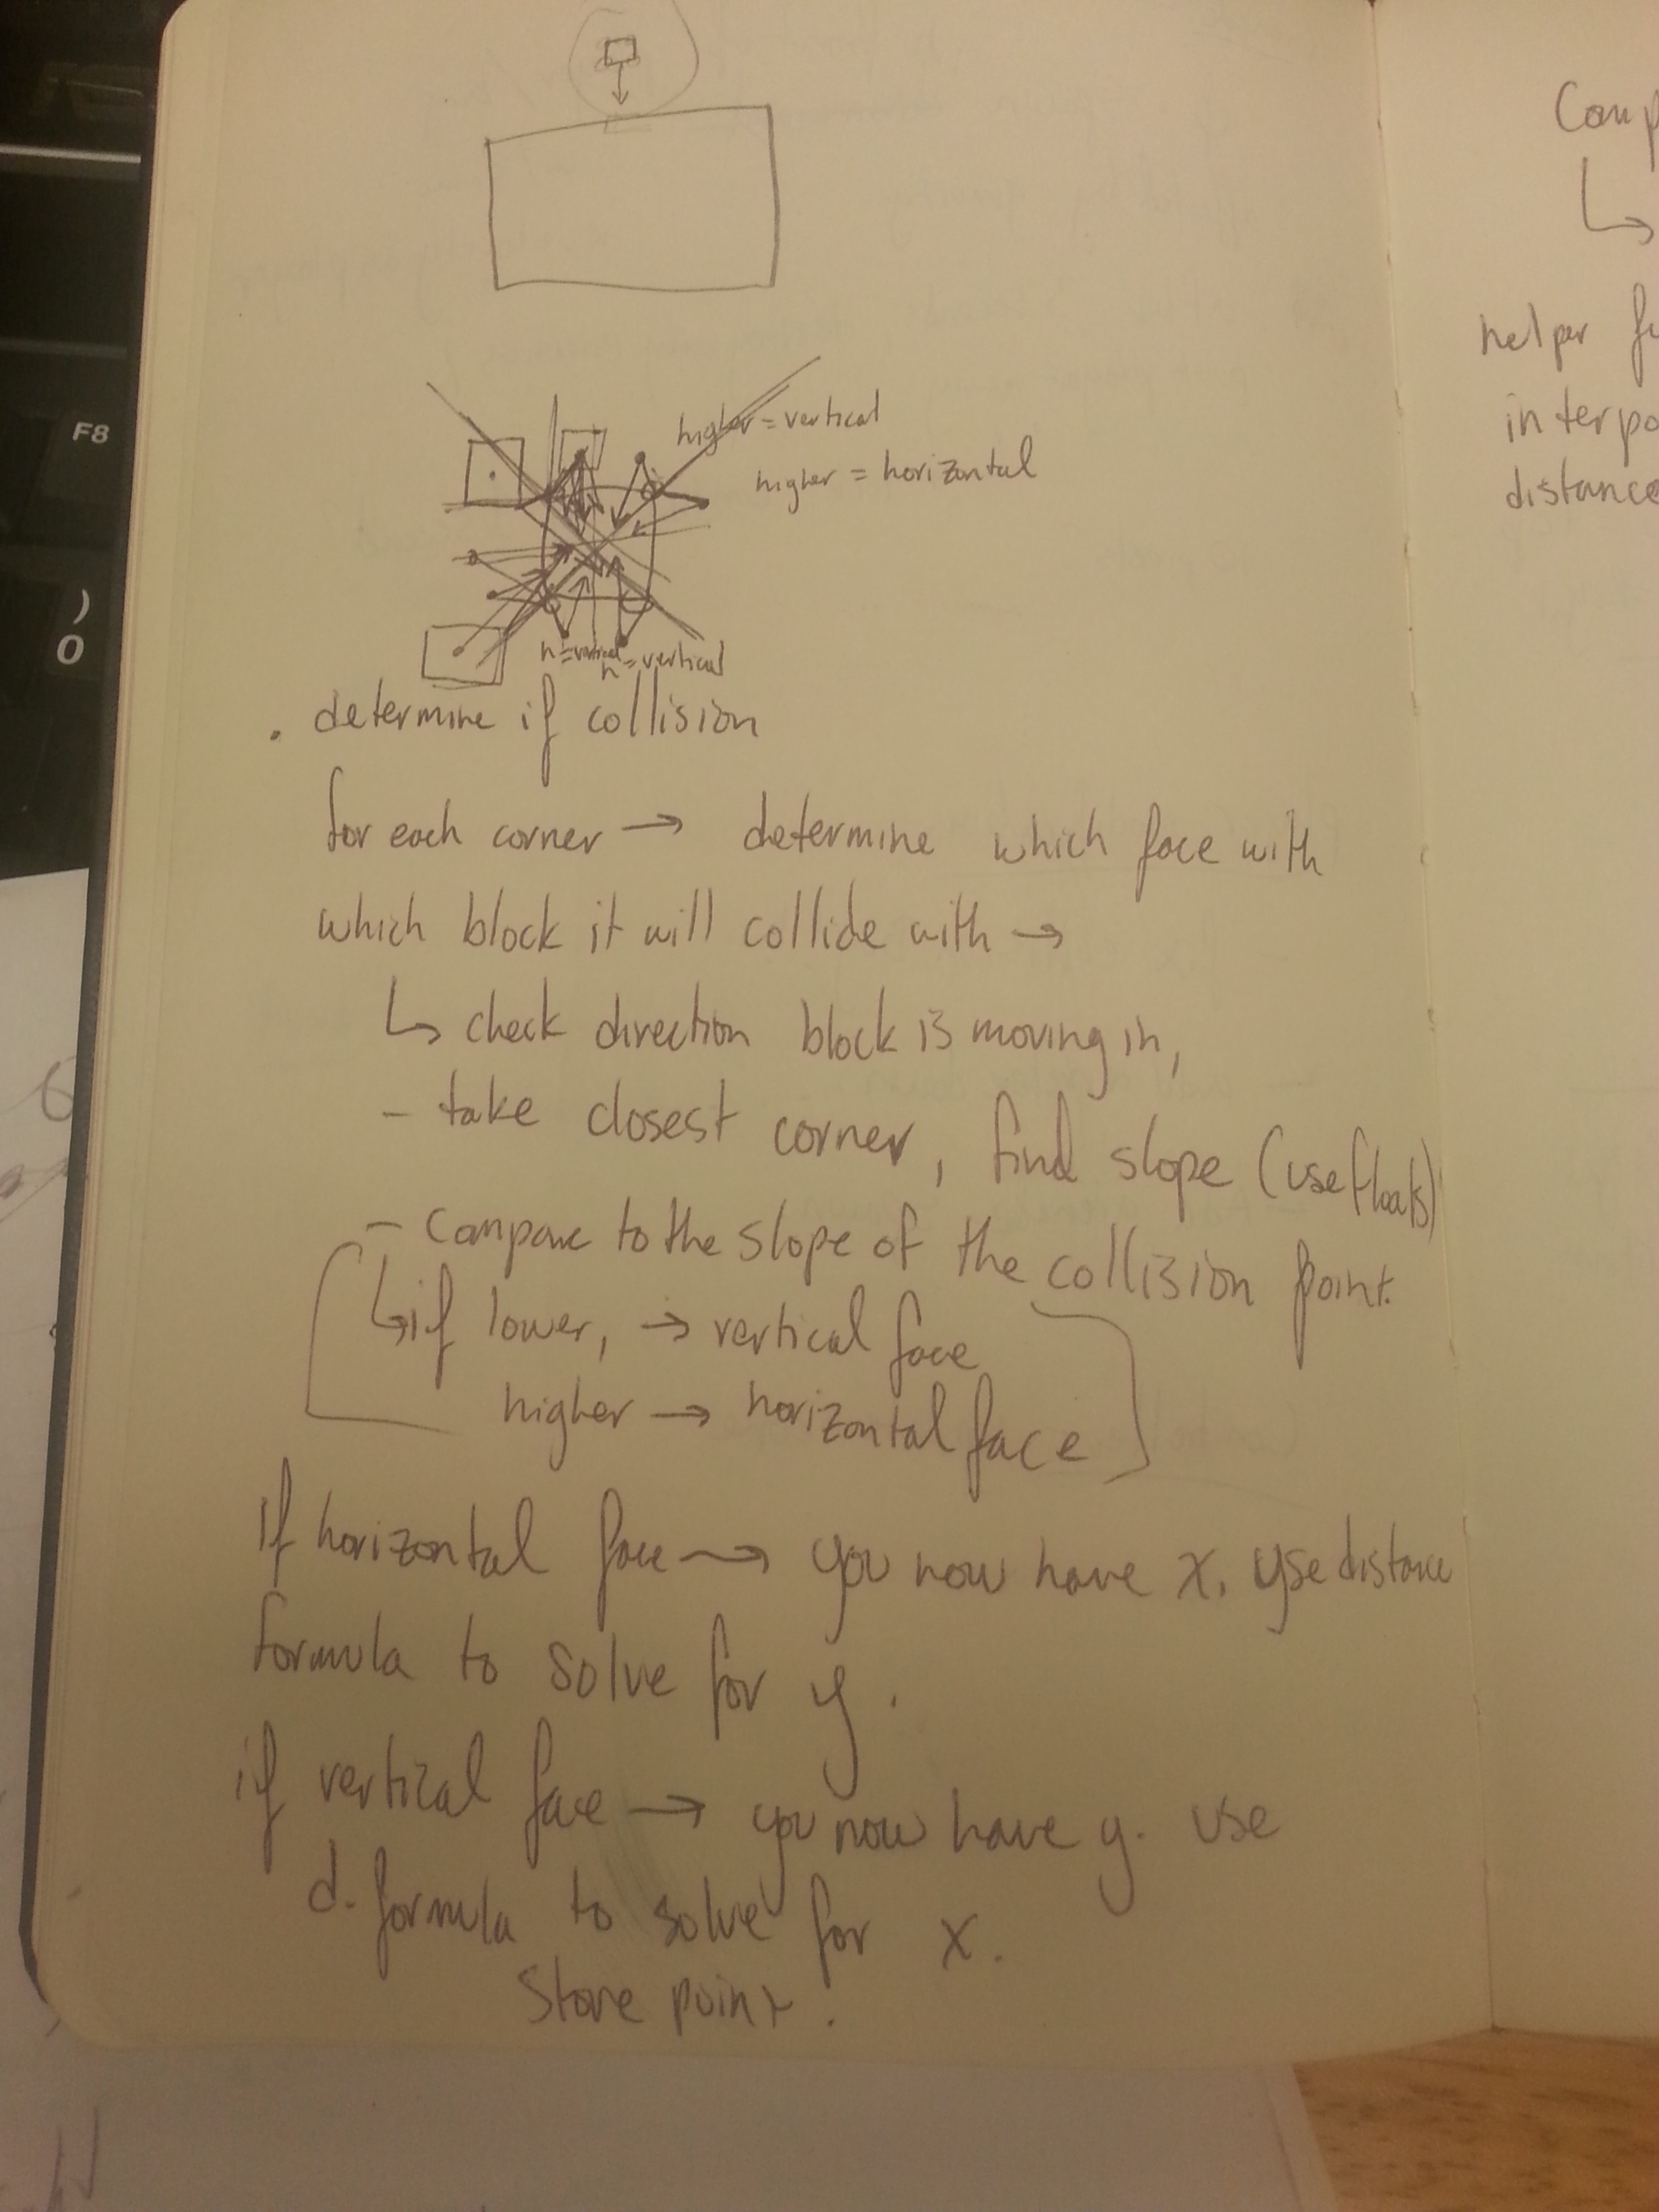 higher = vertical
higher = horizontal
h = vertical
h = vertical
. determine if collision
for each corner → determine which face with
which block it will collide with →
↳ check direction block is moving in,
- take closest corner, find slope (use floats)
- compare to the slope of the collision point.
↳ if lower, → vertical face
higher → horizontal face
If horizontal face → you now have x. use distance
formula to solve for y.
if vertical face → you now have y. use
d. formula to solve for x.
Store point.
Comp
↳
helper fu
interpo
distance
F8
)
0
6